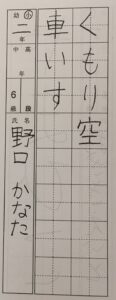 くもり空
車いす
幼 小 二 年
中 高 年
6 級 段
氏名 野口 かなた